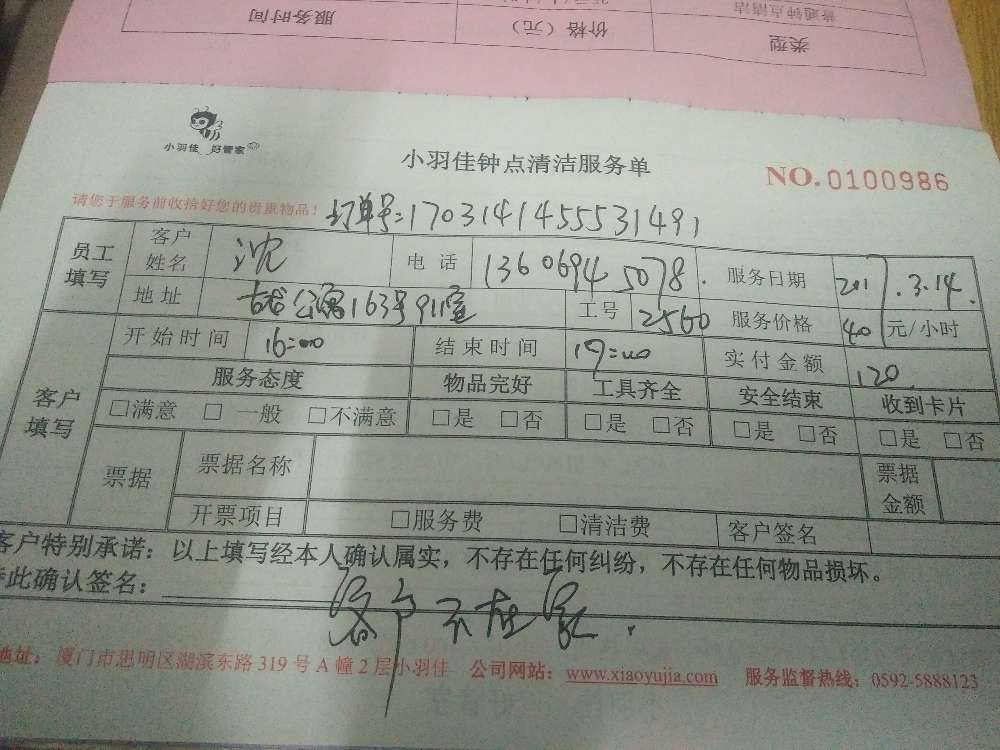 普通钟点清洁
类型 价格（元） 服务时间
小羽佳 好管家
小羽佳钟点清洁服务单
NO.0100986
请您于服务前收拾好您的贵重物品！ 订单号:1703141455531491
员工填写 客户姓名 沈 电话 13606945078. 服务日期 2017.3.14.
地址 公寓163号911室 工号 2560 服务价格 40 元/小时
客户填写 开始时间 16:00 结束时间 19:00 实付金额 120
服务态度 物品完好 工具齐全 安全结束 收到卡片
□满意 □一般 □不满意 □是 □否 □是 □否 □是 □否 □是 □否
票据 票据名称 票据金额
开票项目 □服务费 □清洁费 客户签名
客户特别承诺：以上填写经本人确认属实，不存在任何纠纷，不存在任何物品损坏。
特此确认签名： 客户不在家.
地址：厦门市思明区湖滨东路319号A幢2层小羽佳 公司网站：www.xiaoyujia.com 服务监督热线：0592-5888123